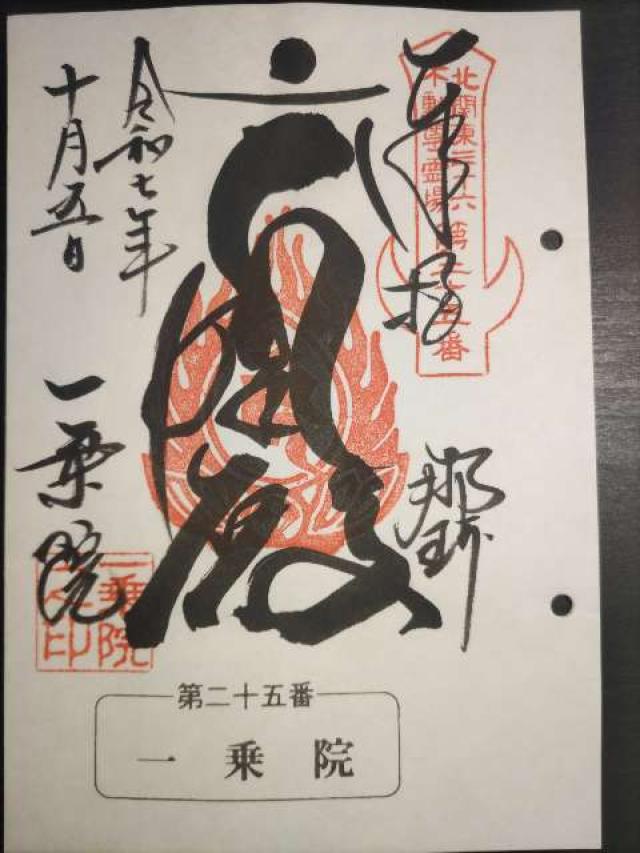 奉拝
北関東三十六
不動尊霊場
第二十五番
那珂
令和七年
十月五日
一乗院
一乗院
之印
第二十五番
一乗院